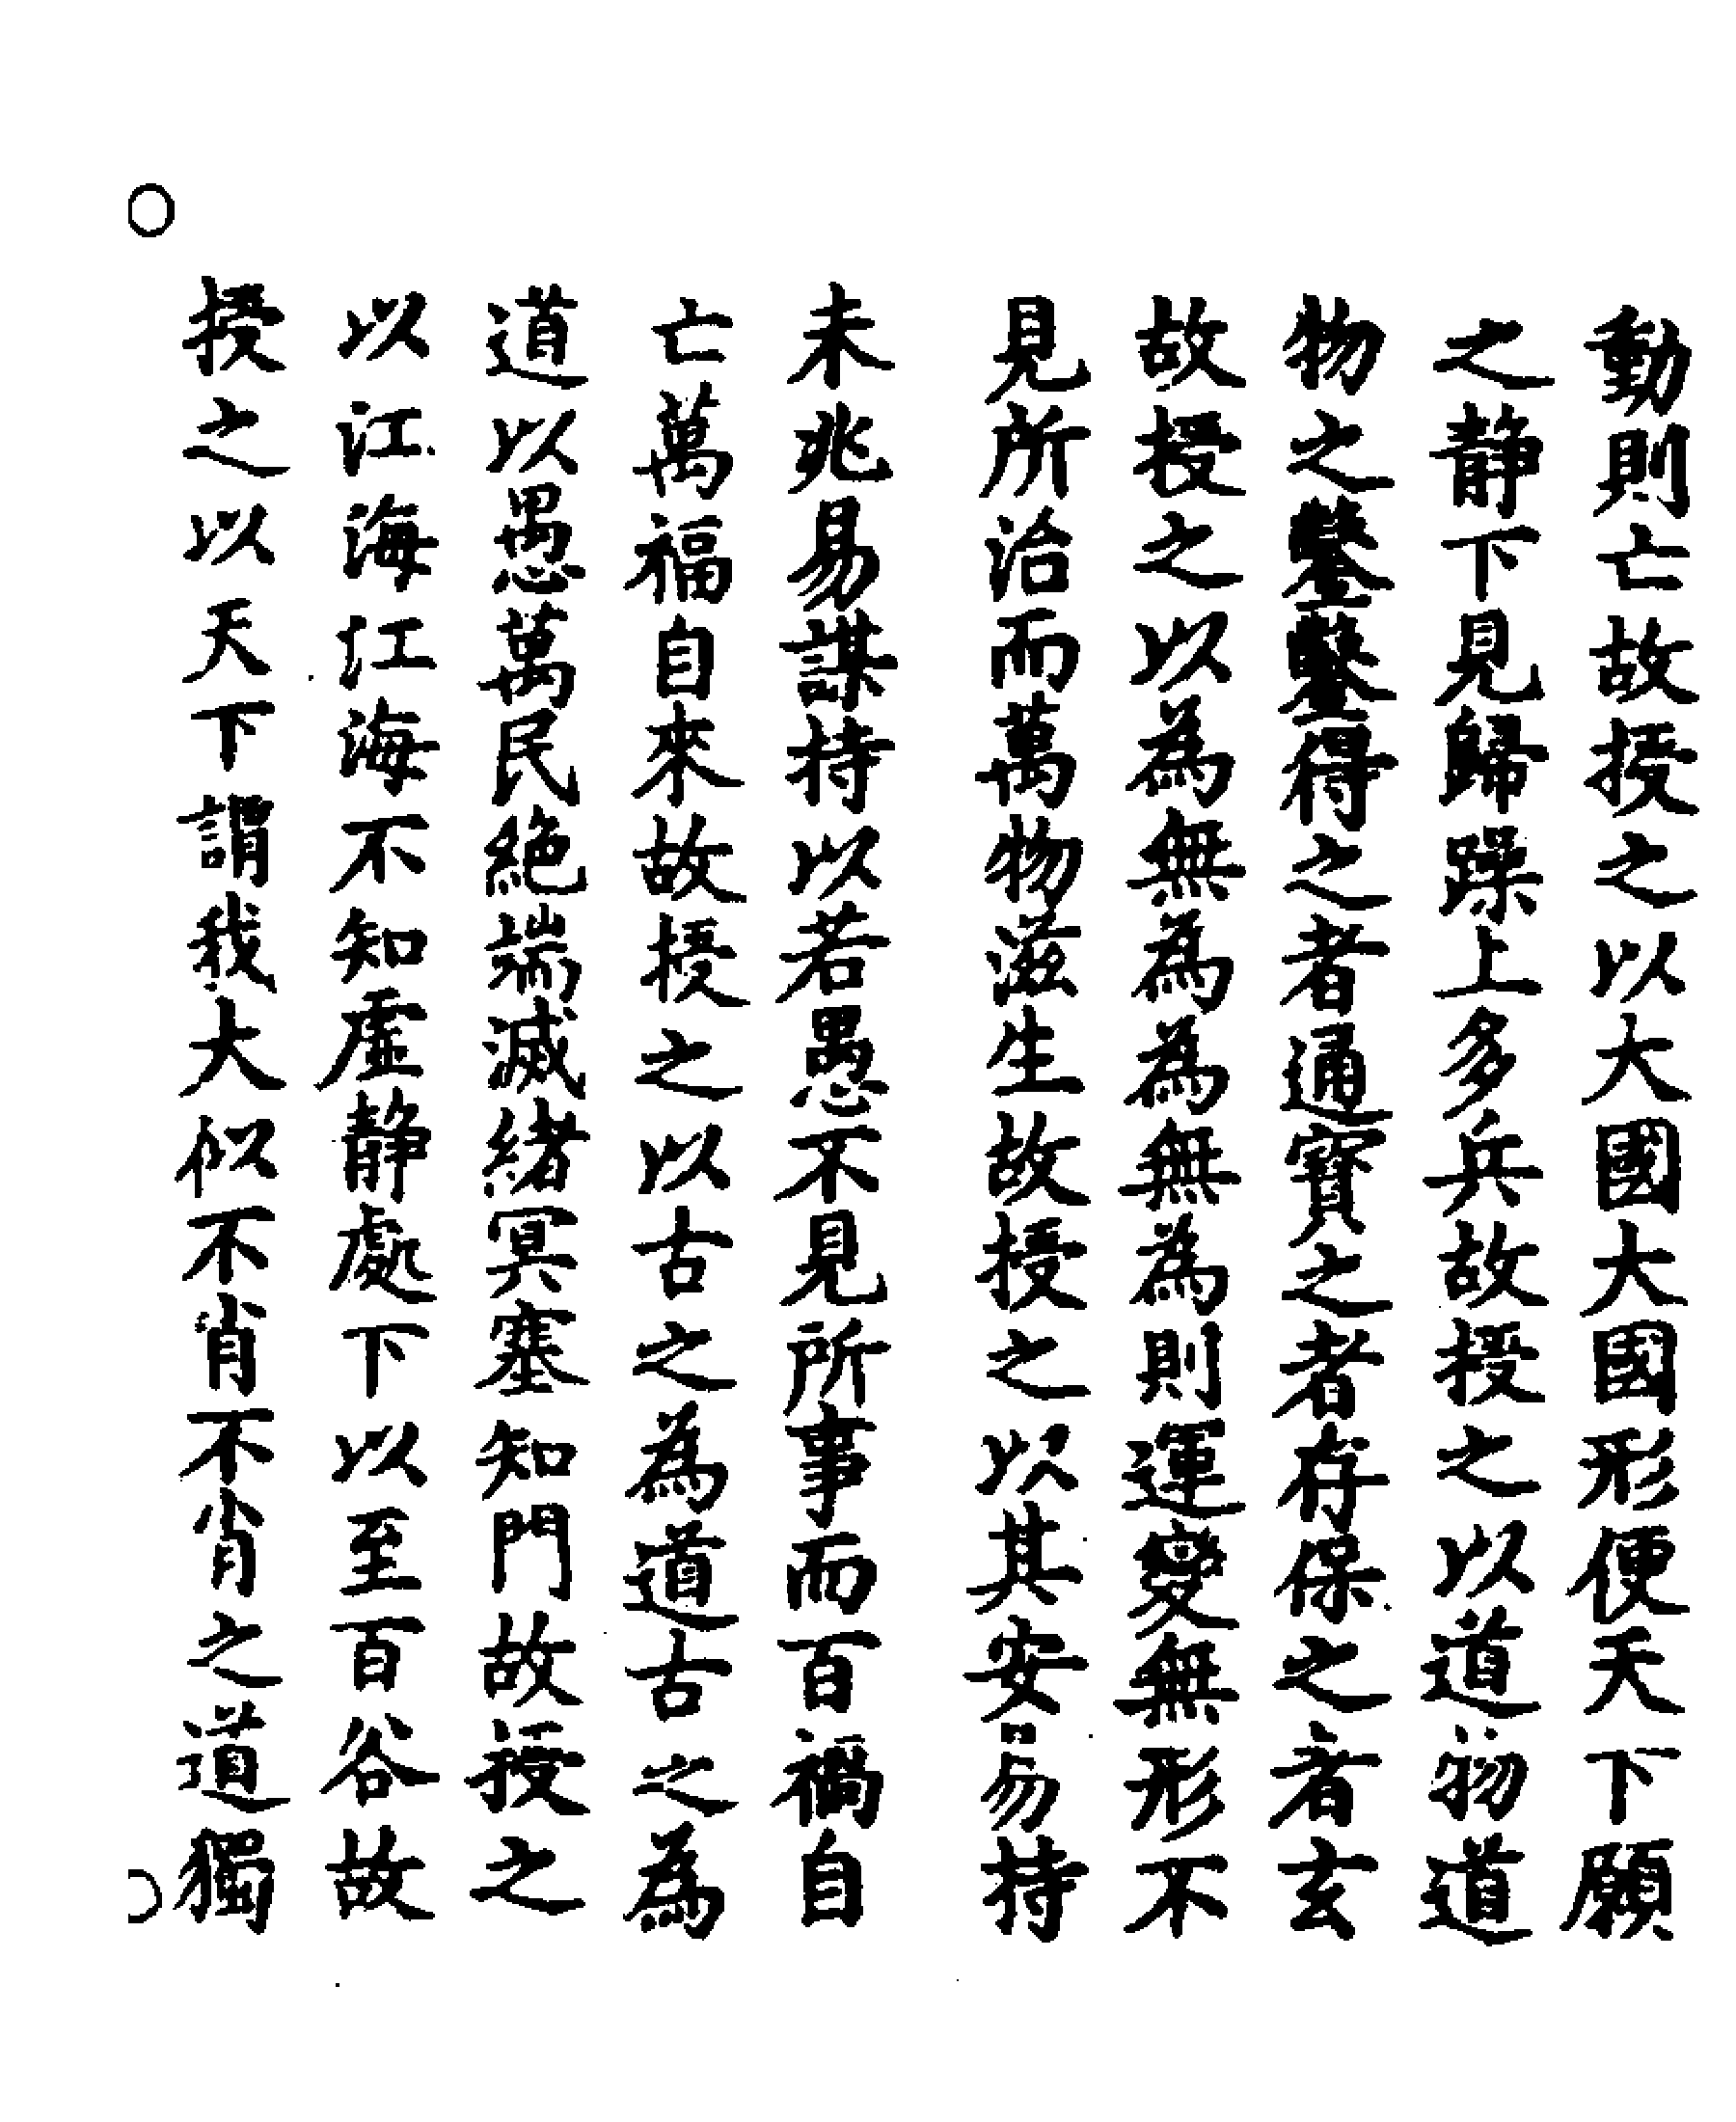 動則亡故授之以大國大國形便天下願
之静下見歸躁上多兵故授之以道物道
物之鑿鑿得之者通寶之者存保之者玄
故授之以為無為為無為則運變無形不
見所治而萬物滋生故授之以其安易持
未兆易謀持以若愚不見所事而百禍自
亡萬福自來故授之以古之為道古之為
道以愚萬民絕端滅緒冥塞知門故授之
以江海江海不知虛静處下以至百谷故
授之以天下謂我大似不肖不肖之道獨